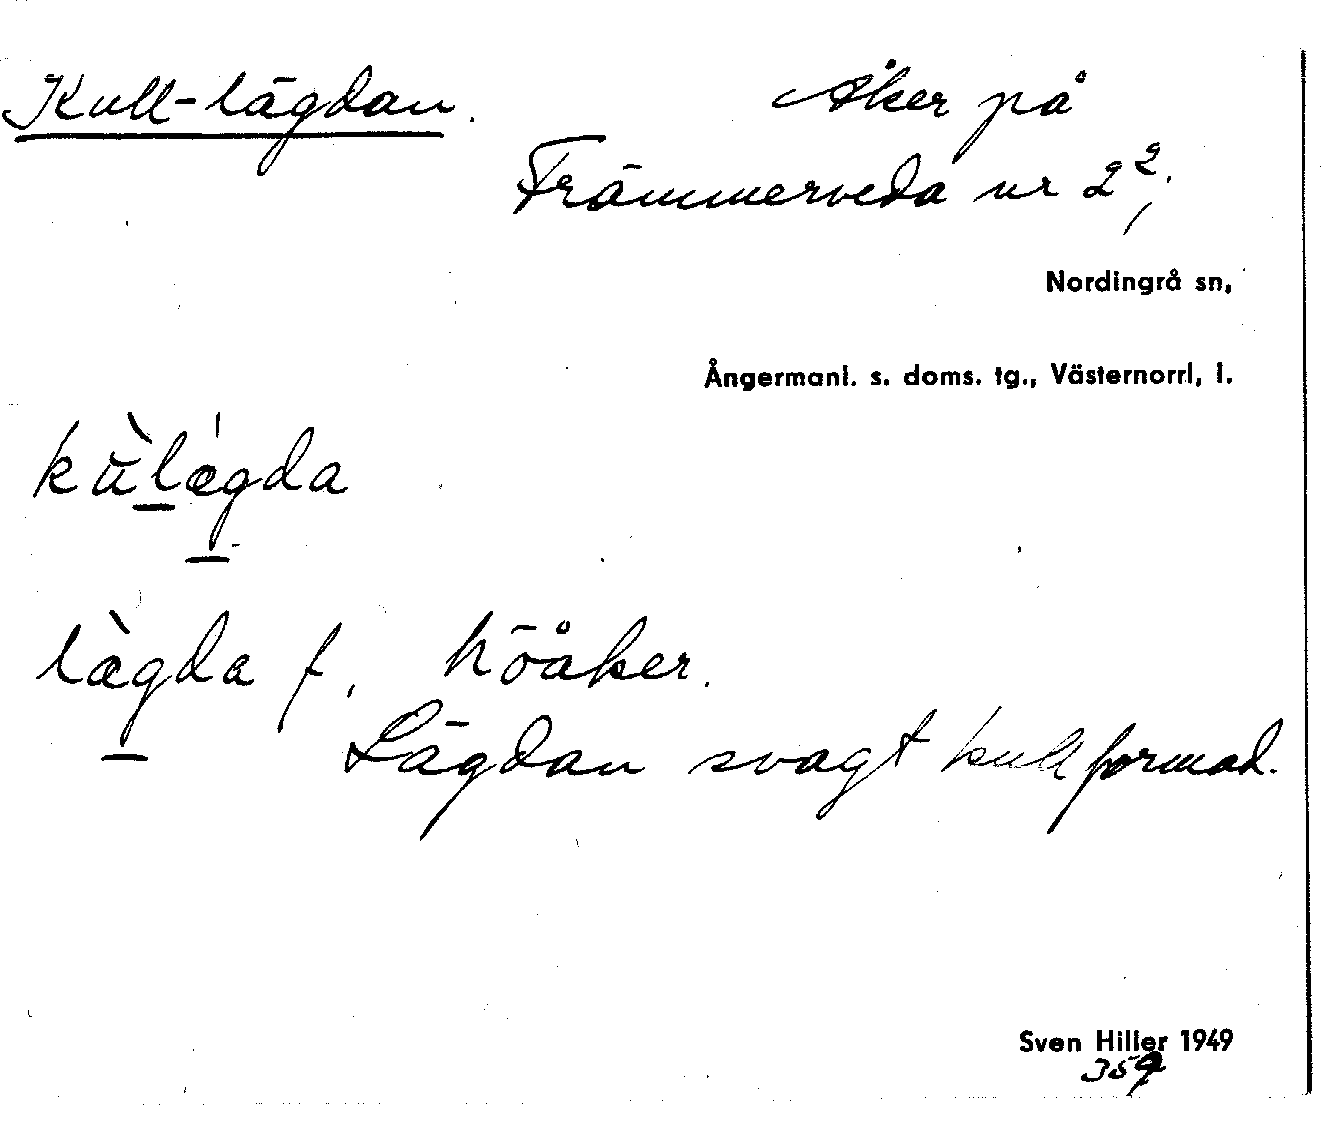 Kull-lägdan. Åker på
Främmerveda nr 2²,
Nordingrå sn,
Ångermanl. s. doms. tg., Västernorrl, l.
kùlǽgda
læ̀gda f, höåker.
Lägdan svagt kullformad.
Sven Hiller 1949
359